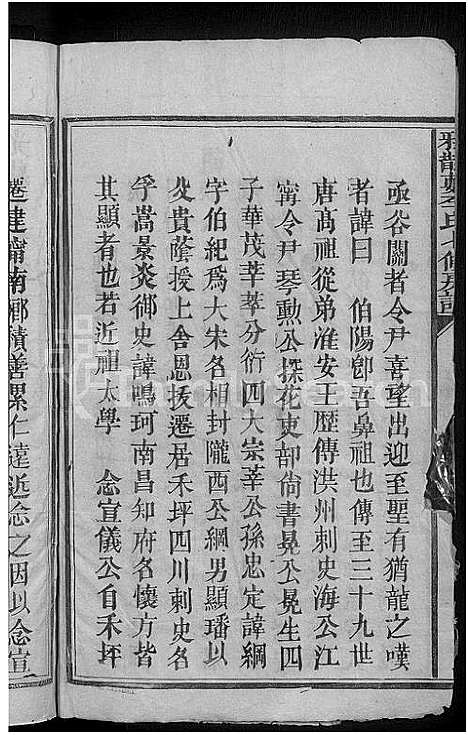 函谷關者令尹喜望出迎至聖有猶龍之嘆
者諱曰　伯陽卽吾鼻祖也傳至三十九世
唐高祖從弟淮安王歷傳洪州刺史海公江
甯令尹琴勳公探花吏部尙書晃公晃生四
子華茂莘莘分衍四大崇莘公孫忠定諱綱
字伯紀爲大宋名相封隴西公綱男顯璠以
父貴蔭授上舍恩拔遷居禾坪四川刺史名
孚嵩景炎御史諱鳴珂南昌知府名懷方皆
其顯者也若近祖太學　念宣儀公自禾坪
卷建甯南鄉積善累仁遠近念之因以念宣